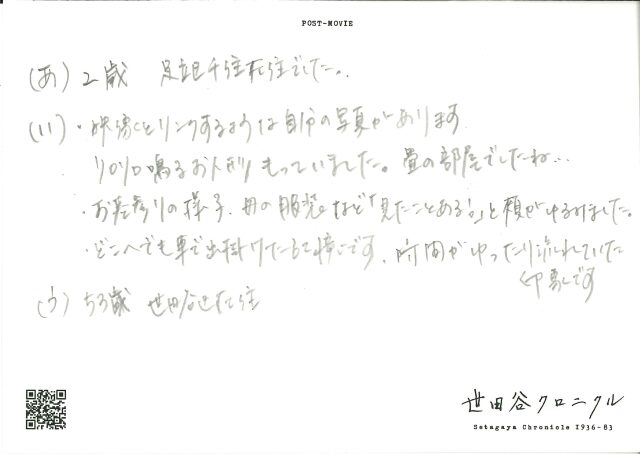 POST-MOVIE
(あ) 2歳 足立区千住在住でした。
(い)・映像とリンクするような自分の写真があります
リロリロ鳴るお人形もっていました。畳の部屋でしたね…
・お宮参りの様子、母の服装など「見たことある!」と顔がゆるみました。
・どこへでも車で出掛けた 時間がゆったり流れていた
印象です
(う) 53歳 世田谷区在住
世田谷クロニクル
Setagaya Chronicle 1936-83